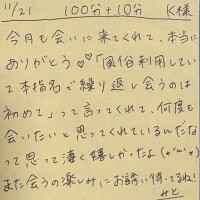 11/21 100分+10分 K様
今月も会いに来てくれて、本当に
ありがとう♡♡「風俗利用してい
て本指名で繰り返し会うのは
初めて」って言ってくれて、何度も
会いたいと思ってくれているんだな
って思って凄く嬉しかったよ(*'ω'*)
また会うの楽しみにお誘い待ってるね!
みと